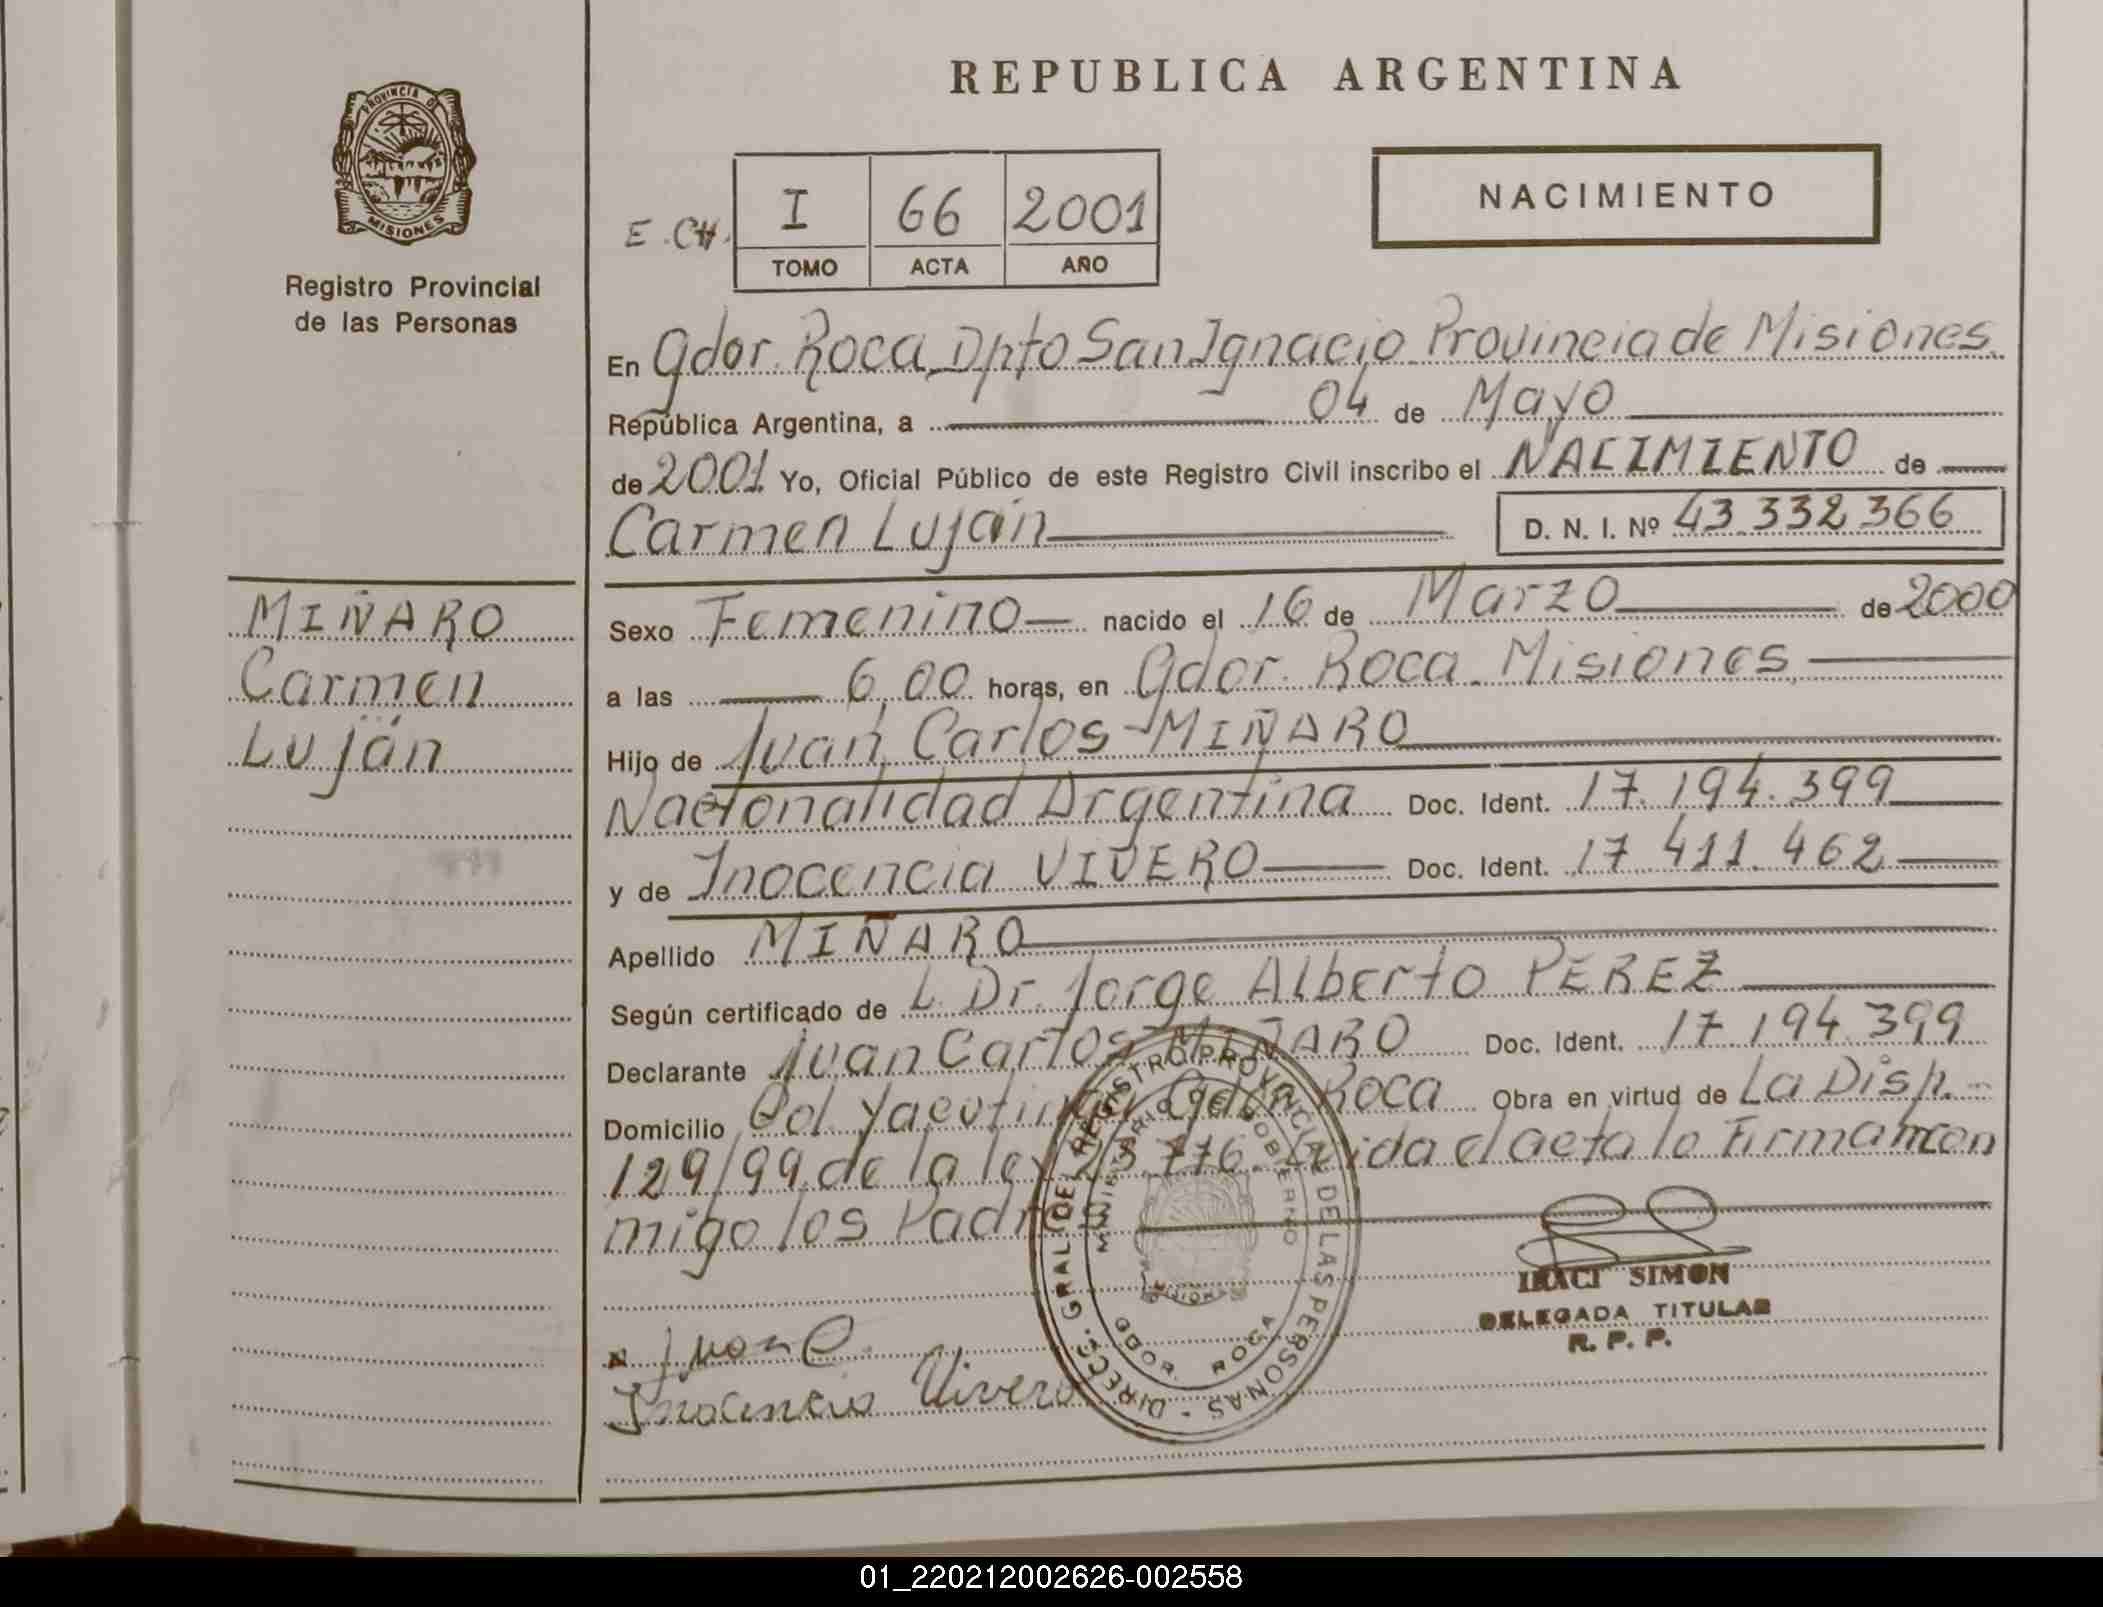 REPUBLICA ARGENTINA
PROVINCIA DE MISIONES
Registro Provincial
de las Personas
NACIMIENTO
E.CH. I 66 2001
TOMO ACTA AÑO
En Gdor. Roca Dpto San Ignacio Provincia de Misiones
República Argentina, a 04 de Mayo
de 2001 Yo, Oficial Público de este Registro Civil inscribo el NACIMIENTO de
Carmen Luján D. N. I. Nº 43.332.366
MIÑARO
Carmen
Luján
Sexo Femenino nacido el 16 de Marzo de 2000
a las 6,00 horas, en Gdor. Roca Misiones
Hijo de Juan Carlos MIÑARO
Nacionalidad Argentina Doc. Ident. 17.194.399
y de Inocencia VIVERO Doc. Ident. 17.411.462
Apellido MIÑARO
Según certificado de L. Dr. Jorge Alberto PEREZ
Declarante Juan Carlos MIÑARO Doc. Ident. 17.194.399
Domicilio Col. Yacutinga Gdor. Roca Obra en virtud de La Disp.
129/99 de la ley 23.776. Leida el acta la Firman con
migo los Padres
DIRECC. GRAL. DEL REGISTRO PROVINCIAL DE LAS PERSONAS
MINISTERIO DE GOBIERNO
GDOR. ROCA
MISIONES
IRACI SIMON
DELEGADA TITULAR
R. P. P.
Juan C.
Inocencia Vivero
01_220212002626-002558